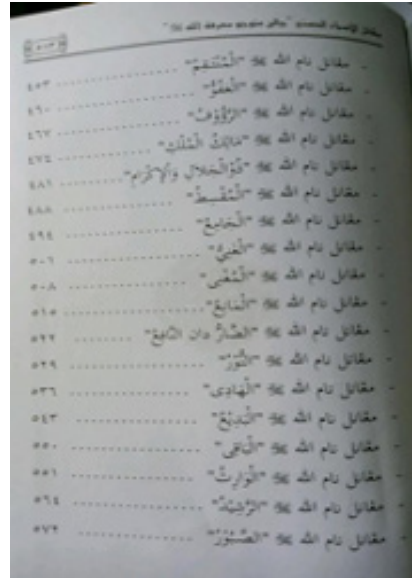 ٥١٣
- مقابل نام الله ﷻ "الْمُنْتَقِمُ" ٤٥٣
- مقابل نام الله ﷻ "الْعَفُوُّ" ٤٦٠
- مقابل نام الله ﷻ "الرَّؤُوْفُ" ٤٦٧
- مقابل نام الله ﷻ "مَالِكُ الْمُلْكِ" ٤٧٤
- مقابل نام الله ﷻ "ذُوْالْجَلَالِ وَالْإِكْرَامِ" ٤٨١
- مقابل نام الله ﷻ "الْمُقْسِطُ" ٤٨٨
- مقابل نام الله ﷻ "الْجَامِعُ" ٤٩٤
- مقابل نام الله ﷻ "الْغَنِيُّ" ٥٠١
- مقابل نام الله ﷻ "الْمُغْنِى" ٥٠٨
- مقابل نام الله ﷻ "الْمَانِعُ" ٥١٥
- مقابل نام الله ﷻ "الضَّارُّ دان النَّافِعُ" ٥٢٢
- مقابل نام الله ﷻ "النُّوْرُ" ٥٢٩
- مقابل نام الله ﷻ "الْهَادِى" ٥٣٦
- مقابل نام الله ﷻ "الْبَدِيْعُ" ٥٤٣
- مقابل نام الله ﷻ "الْبَاقِى" ٥٥٠
- مقابل نام الله ﷻ "الْوَارِثُ" ٥٥٦
- مقابل نام الله ﷻ "الرَّشِيْدُ" ٥٦٤
- مقابل نام الله ﷻ "الصَّبُوْرُ" ٥٧٢